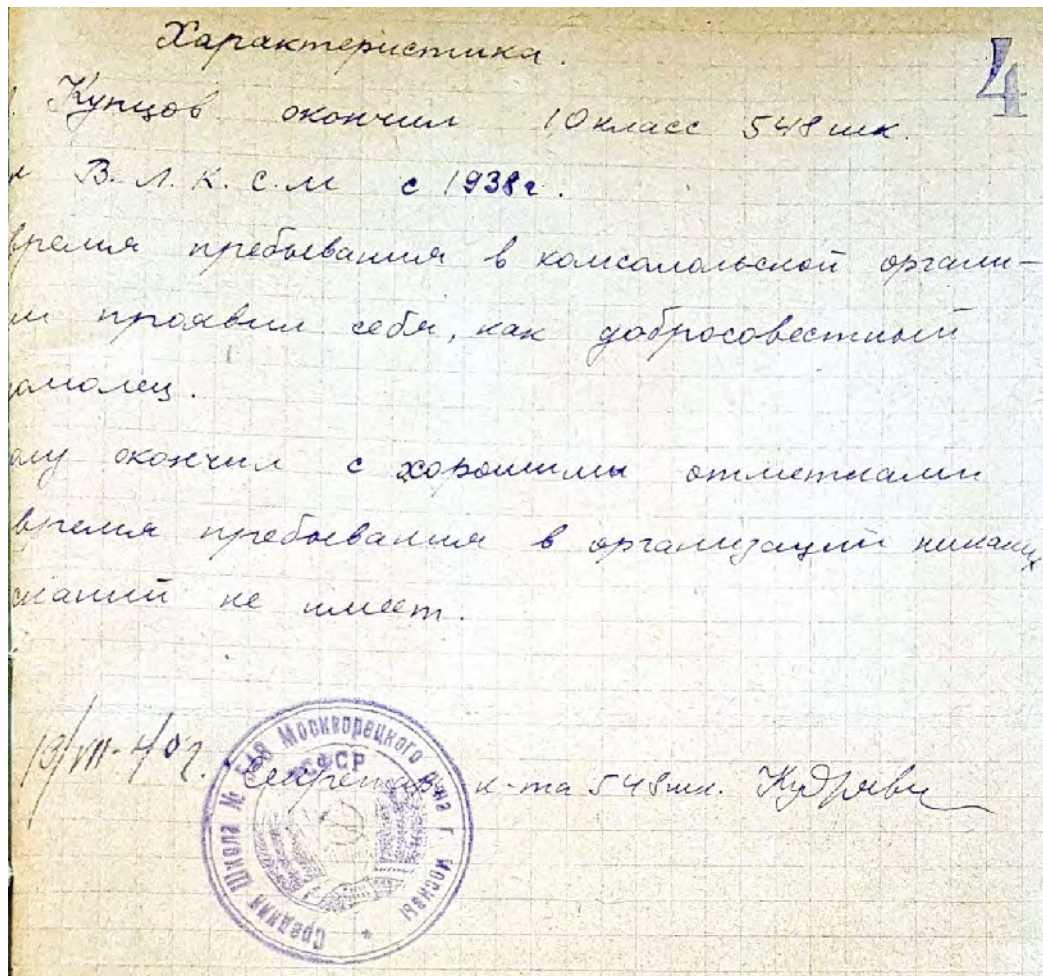 Характеристика.
4
Купцов окончил 10 класс 548 шк.
В. Л. К. С. М с 1938 г.
время пребывания в комсомольской органи-
ии проявил себя, как добросовестный
омолец.
олу окончил с хорошими отметками
время пребывания в организации никаких
сканий не имеет.
13/VII-40 г. Секретарь к-та 548 шк.
Средняя Школа № 548 Москворецкого р-на г. Москвы
РСФСР